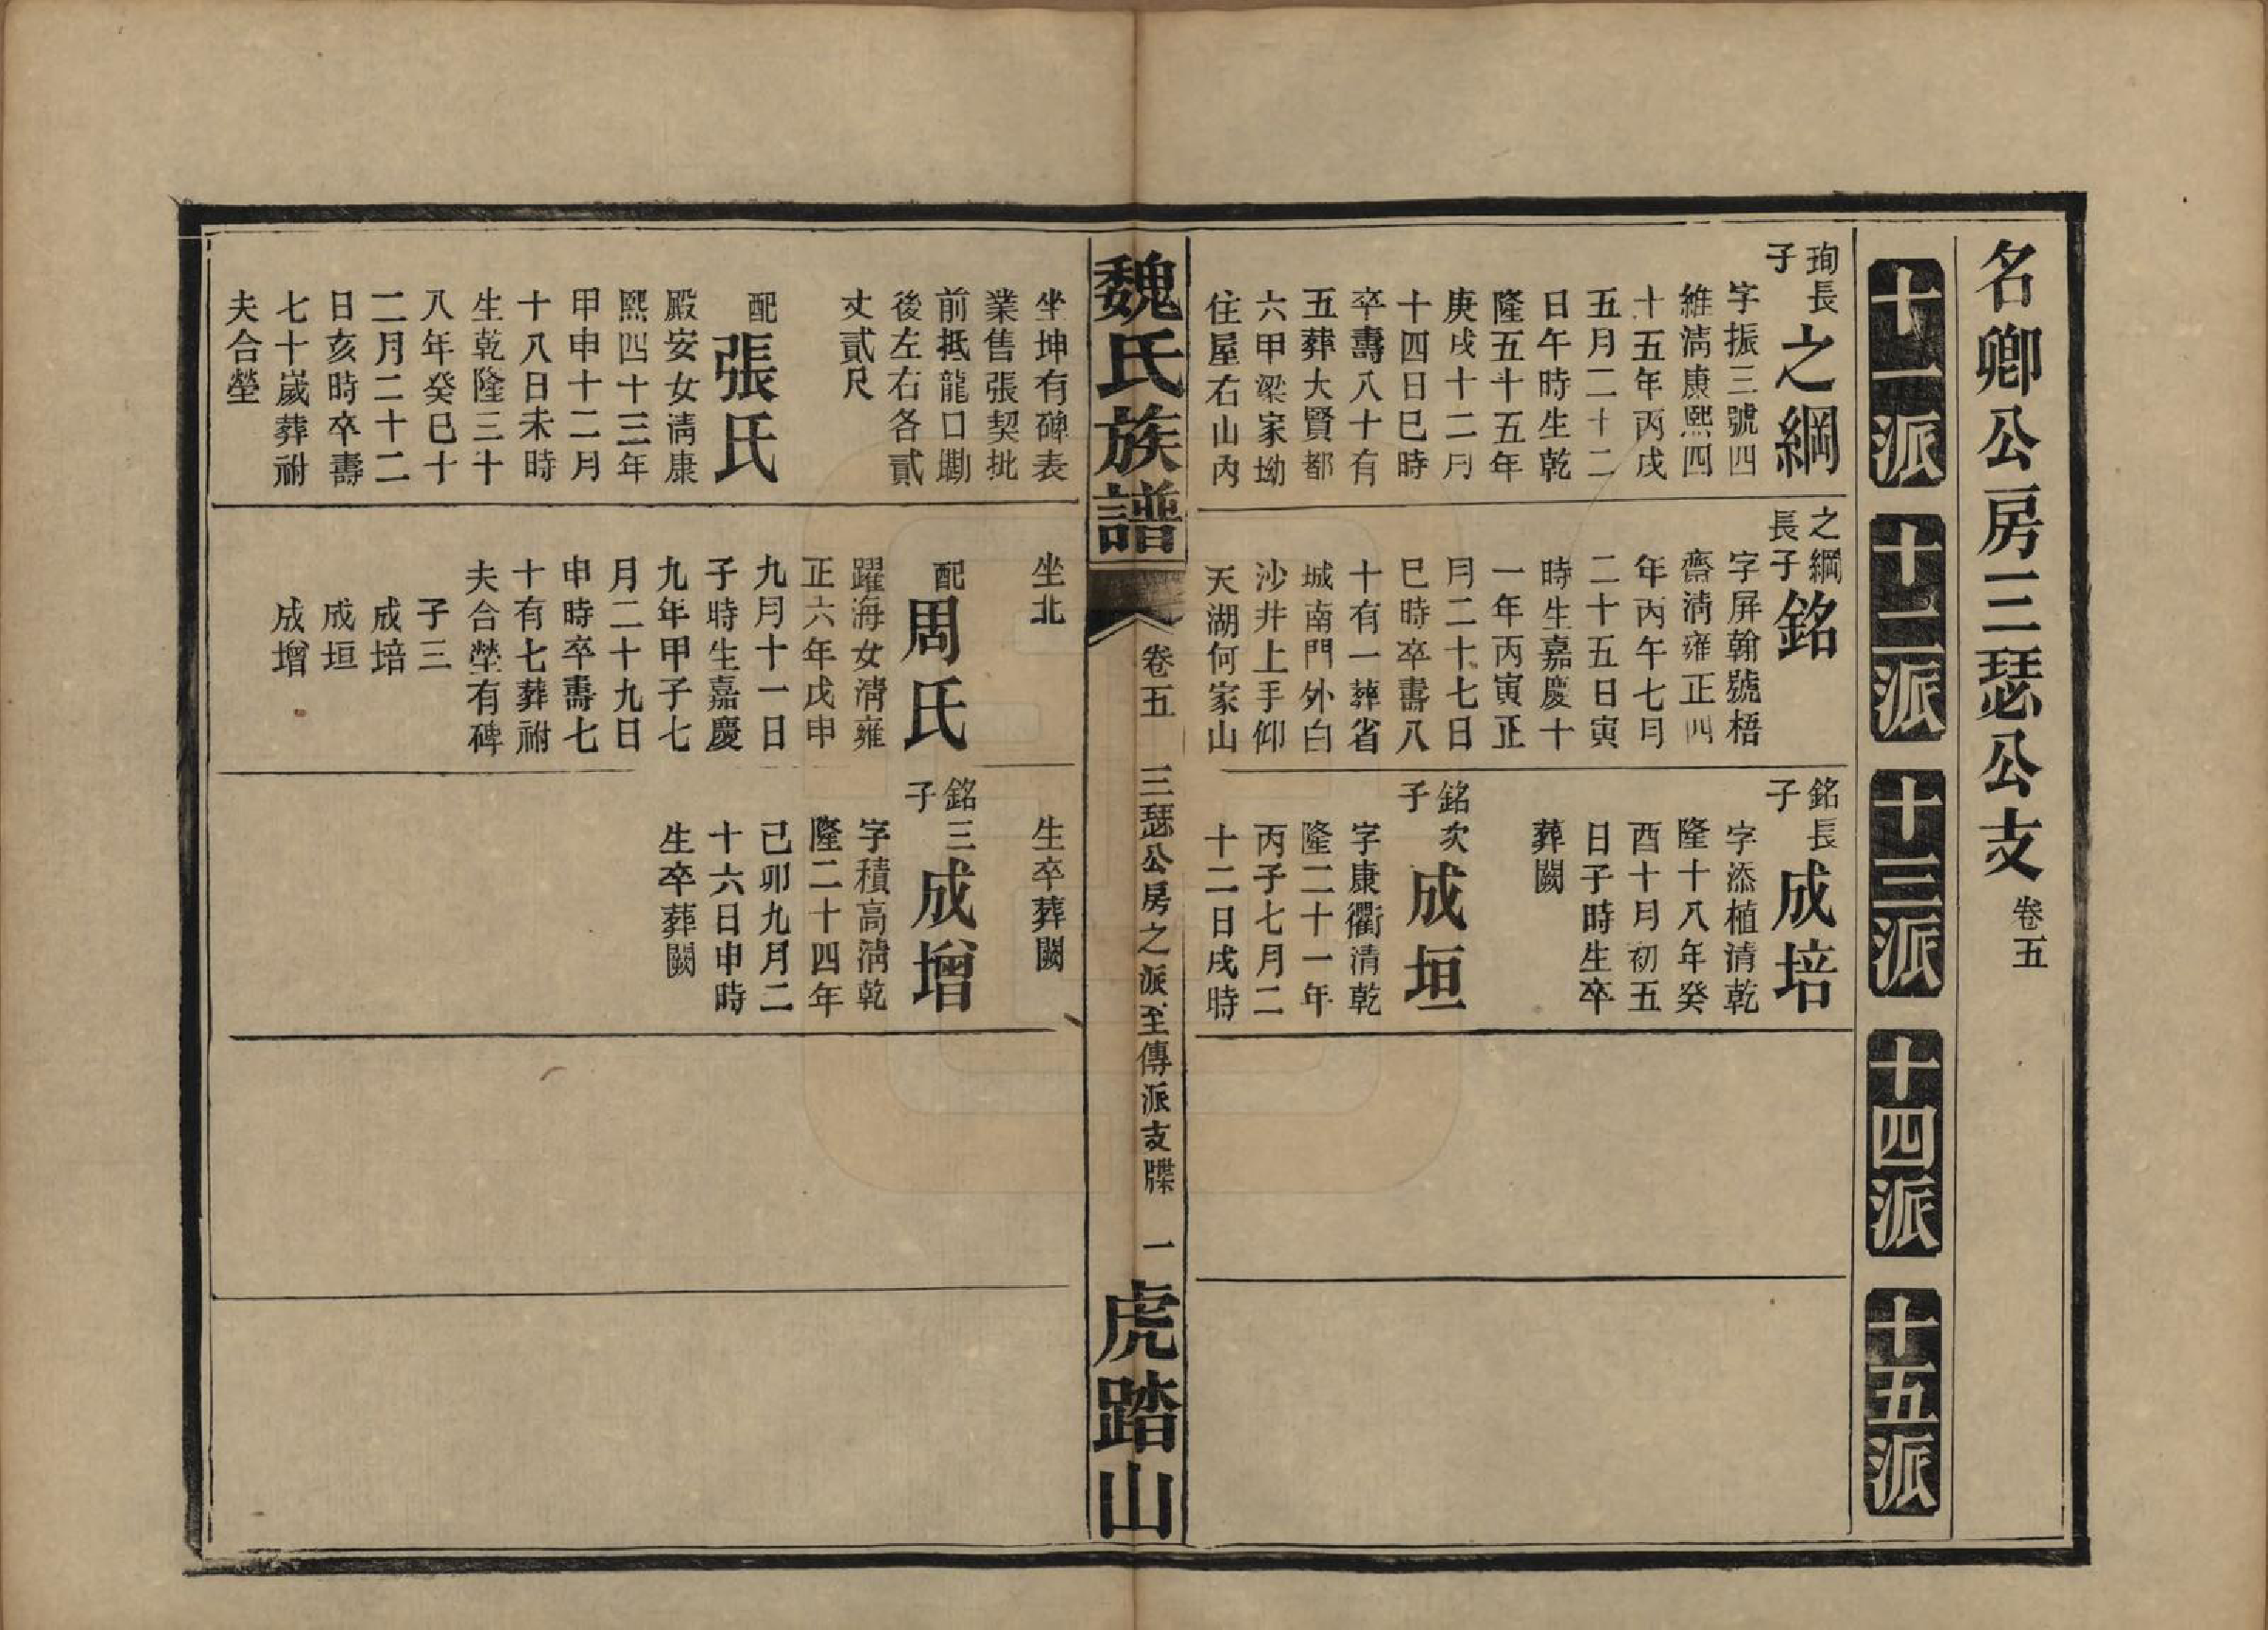 名卿公房三瑟公支 卷五
十一派
十二派
十三派
十四派
十五派
珣長
子
之綱
字振三號四
維淸康熙四
十五年丙戌
五月二十二
日午時生乾
隆五十五年
庚戌十二月
十四日巳時
卒壽八十有
五葬大賢都
六甲梁家坳
住屋右山內
坐坤有碑表
業售張契批
前抵龍口劚
後左右各貳
丈貳尺
配
張氏
殿安女淸康
熙四十三年
甲申十二月
十八日未時
生乾隆三十
八年癸巳十
二月二十二
日亥時卒壽
七十歲葬祔
夫合塋
之綱
長子
銘
字屏翰號梧
齋淸雍正四
年丙午七月
二十五日寅
時生嘉慶十
一年丙寅正
月二十七日
巳時卒壽八
十有一葬省
城南門外白
沙井上手仰
天湖何家山
坐北
配
周氏
躍海女淸雍
正六年戊申
九月十一日
子時生嘉慶
九年甲子七
月二十九日
申時卒壽七
十有七葬祔
夫合塋有碑
子三
成培
成垣
成增
銘長
子
成培
字添植淸乾
隆十八年癸
酉十月初五
日子時生卒
葬闕
銘次
子
成垣
字康衢淸乾
隆二十一年
丙子七月二
十二日戌時
生卒葬闕
銘三
子
成增
字積高淸乾
隆二十四年
己卯九月二
十六日申時
生卒葬闕
魏氏族譜
卷五
三瑟公房之派至傳派支牒
一
虎踏山